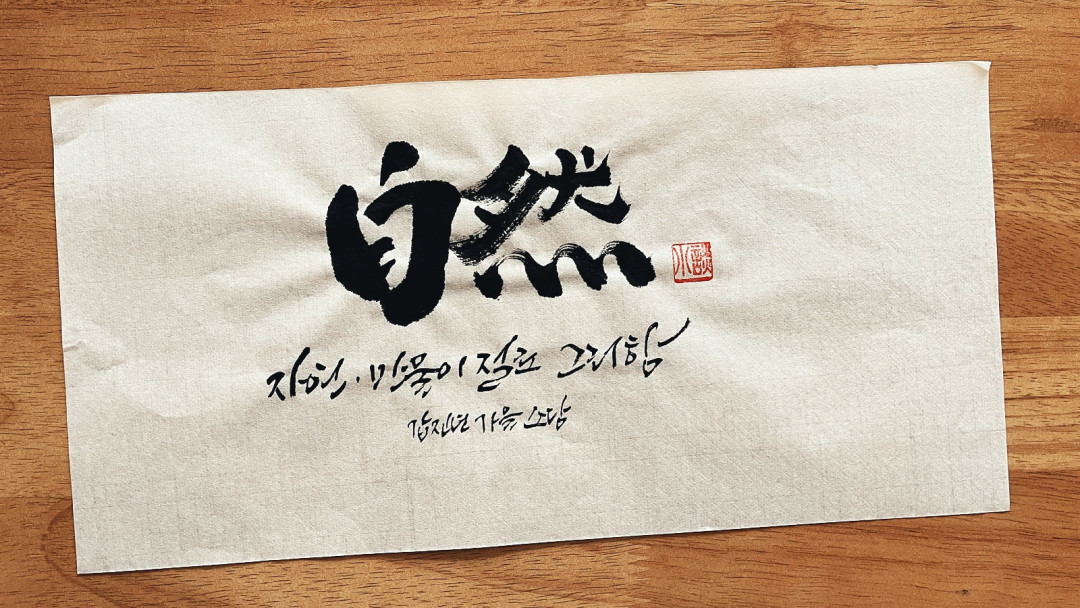 自然
小談
자연. 만물이 절로 그러함
갑진년 가을 소담